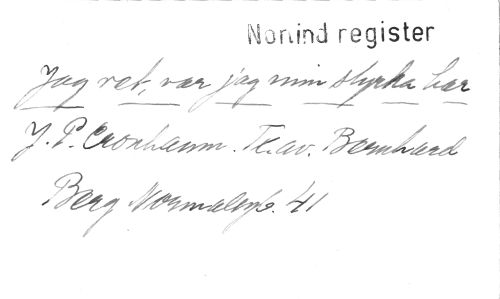 Nonind register
Jag vet, var jag min styrka har
J. P. Cronhamm. Tr. av. Bernhard
Berg Normalsps. 41